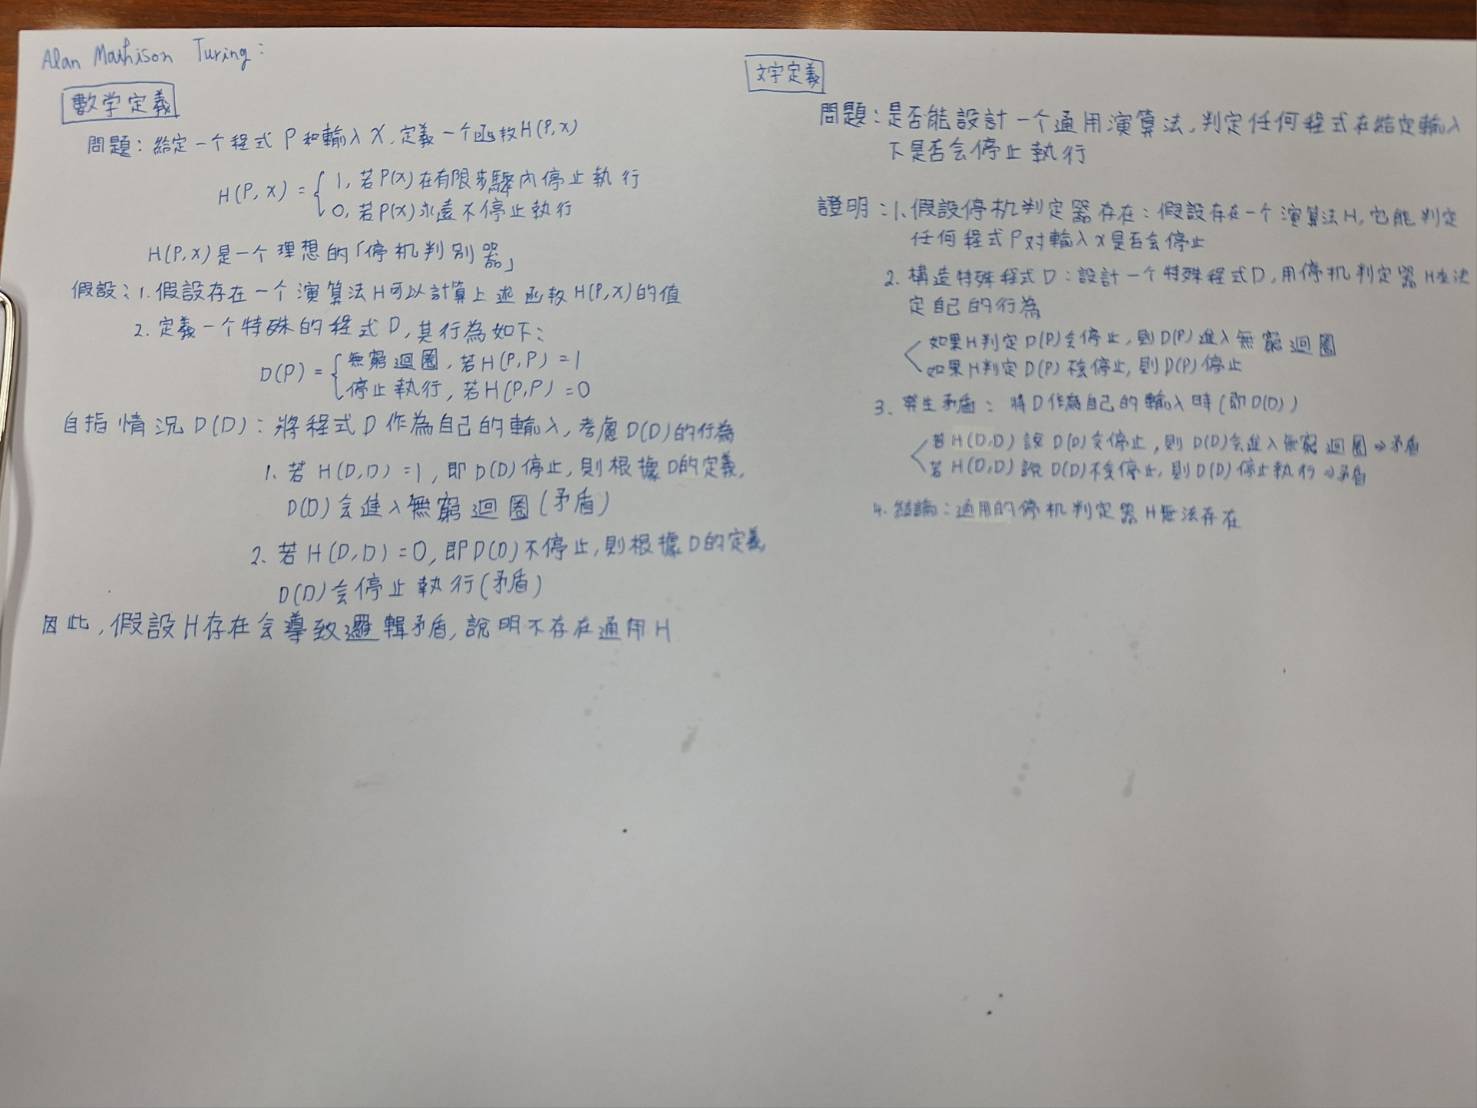 Alan Mathison Turing:
數学定義
問題: 給定一个程式 P 和輸入 X, 定義一个函数 H(P,x)
H(P,x) = { 1, 若P(x)在有限步驟內停止執行
0, 若P(x)永遠不停止執行
H(P,x)是一个理想的「停机判別器」
假設: 1. 假設存在一个演算法H可以計算上述函数H(P,x)的值
2. 定義一个特殊的程式D, 其行為如下:
D(P) = { 無窮迴圈, 若H(P,P)=1
停止執行, 若H(P,P)=0
自指情況 D(D): 將程式D作為自己的輸入, 考慮D(D)的行為
1. 若 H(D,D)=1, 即D(D)停止, 則根據D的定義,
D(D)会進入無窮迴圈(矛盾)
2. 若 H(D,D)=0, 即D(D)不停止, 則根據D的定義
D(D)会停止執行(矛盾)
因此, 假設H存在会導致邏輯矛盾, 說明不存在通用H
文字定義
問題: 是否能設計一个通用演算法, 判定任何程式在給定輸入
下是否会停止執行
證明: 1. 假設停机判定器存在: 假設存在一个演算法H, 它能判定
任何程式P对輸入x是否会停止
2. 構造特殊程式D: 設計一个特殊程式D, 用停机判定器H來決
定自己的行為
如果H判定D(P)会停止, 則D(P)進入無窮迴圈
如果H判定D(P)不会停止, 則D(P)停止
3. 產生矛盾: 將D作為自己的輸入時(即D(D))
若H(D,D)說D(D)会停止, 則D(D)会進入無窮迴圈⇒矛盾
若H(D,D)說D(D)不会停止, 則D(D)停止執行⇒矛盾
4. 結論: 通用的停机判定器H無法存在